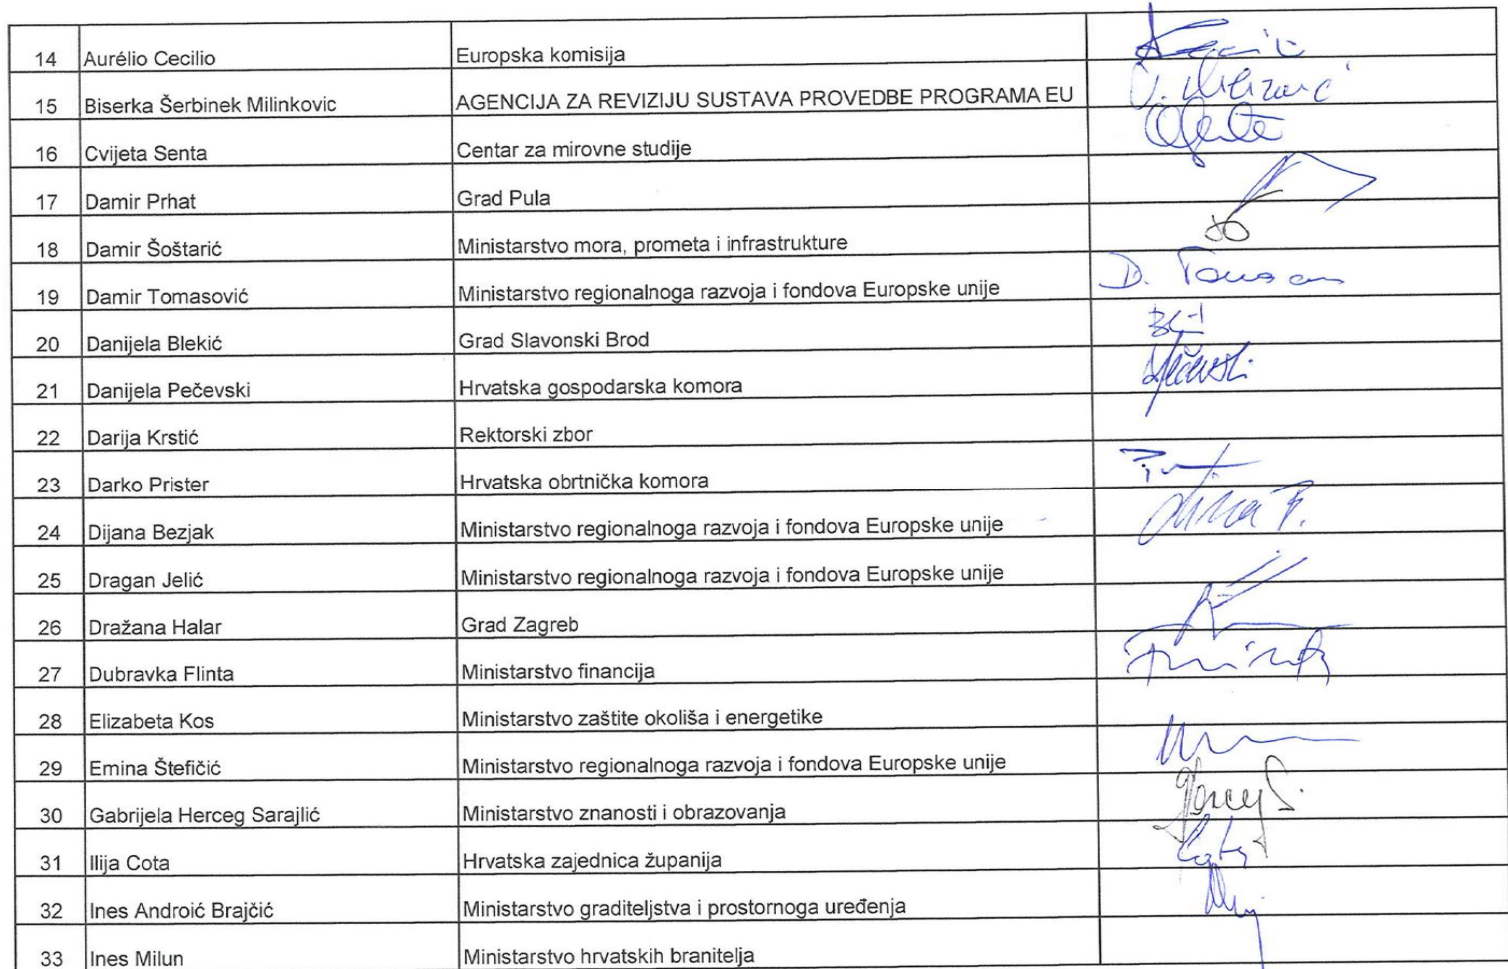 14 Aurélio Cecilio Europska komisija
15 Biserka Šerbinek Milinkovic AGENCIJA ZA REVIZIJU SUSTAVA PROVEDBE PROGRAMA EU
16 Cvijeta Senta Centar za mirovne studije
17 Damir Prhat Grad Pula
18 Damir Šoštarić Ministarstvo mora, prometa i infrastrukture
19 Damir Tomasović Ministarstvo regionalnoga razvoja i fondova Europske unije
20 Danijela Blekić Grad Slavonski Brod
21 Danijela Pečevski Hrvatska gospodarska komora
22 Darija Krstić Rektorski zbor
23 Darko Prister Hrvatska obrtnička komora
24 Dijana Bezjak Ministarstvo regionalnoga razvoja i fondova Europske unije
25 Dragan Jelić Ministarstvo regionalnoga razvoja i fondova Europske unije
26 Dražana Halar Grad Zagreb
27 Dubravka Flinta Ministarstvo financija
28 Elizabeta Kos Ministarstvo zaštite okoliša i energetike
29 Emina Štefičić Ministarstvo regionalnoga razvoja i fondova Europske unije
30 Gabrijela Herceg Sarajlić Ministarstvo znanosti i obrazovanja
31 Ilija Cota Hrvatska zajednica županija
32 Ines Androić Brajčić Ministarstvo graditeljstva i prostornoga uređenja
33 Ines Milun Ministarstvo hrvatskih branitelja